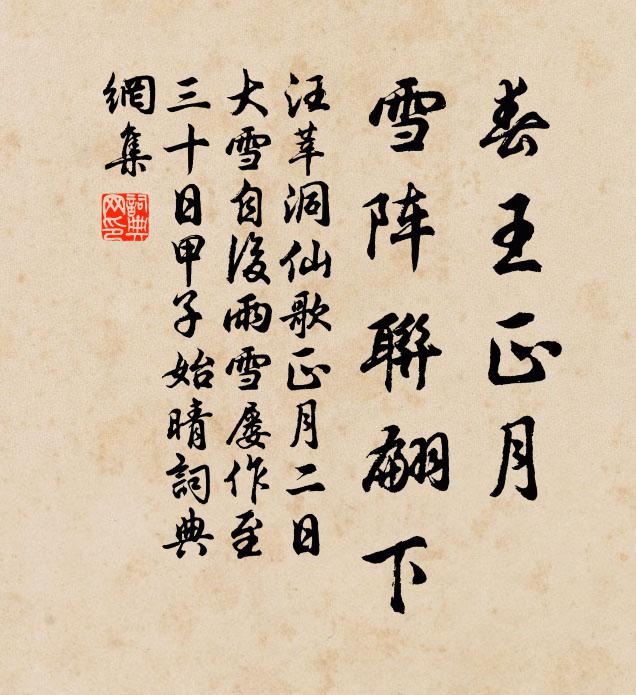 春王正月
雪阵聯翩下
汪莘洞仙歌正月二日
大雪自後雨雪屡作至
三十日甲子始晴詞典
網集
詞典網印